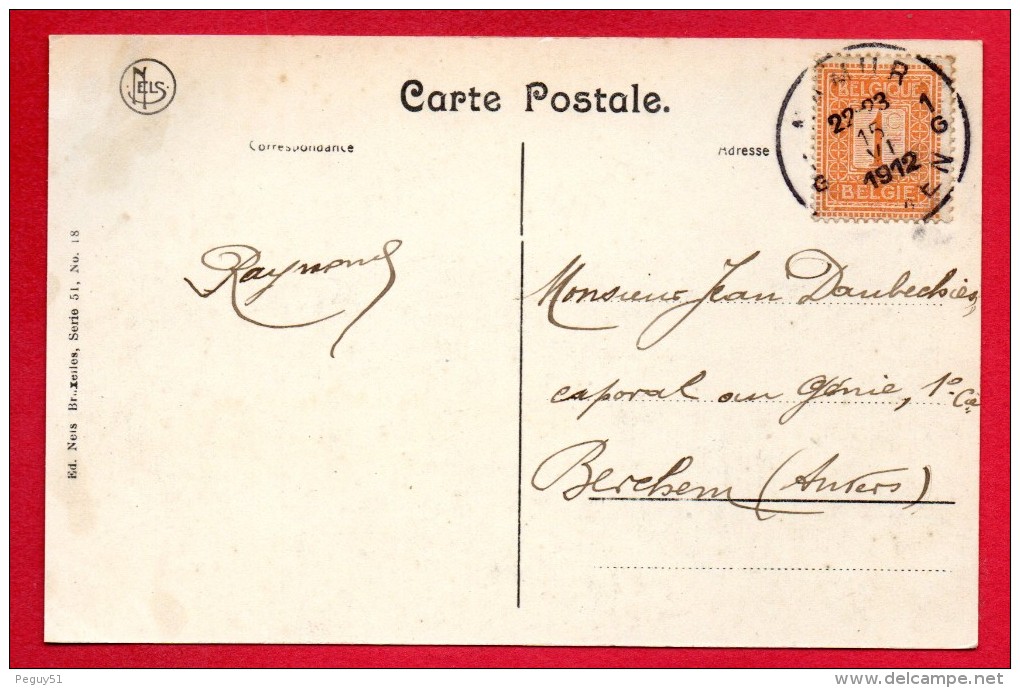 NELS
Carte Postale.
Correspondance
Adresse
BELGIQUE
1
BELGIE
NAMUR 1
22-23
15
VI
1912
Raymond
Monsieur Jean Daubechies,
caporal au Génie, 1º Cie
Berchem (Anvers)
Ed. Nels Bruxelles, Serie 51, No. 18
Peguy51
delcampe.net